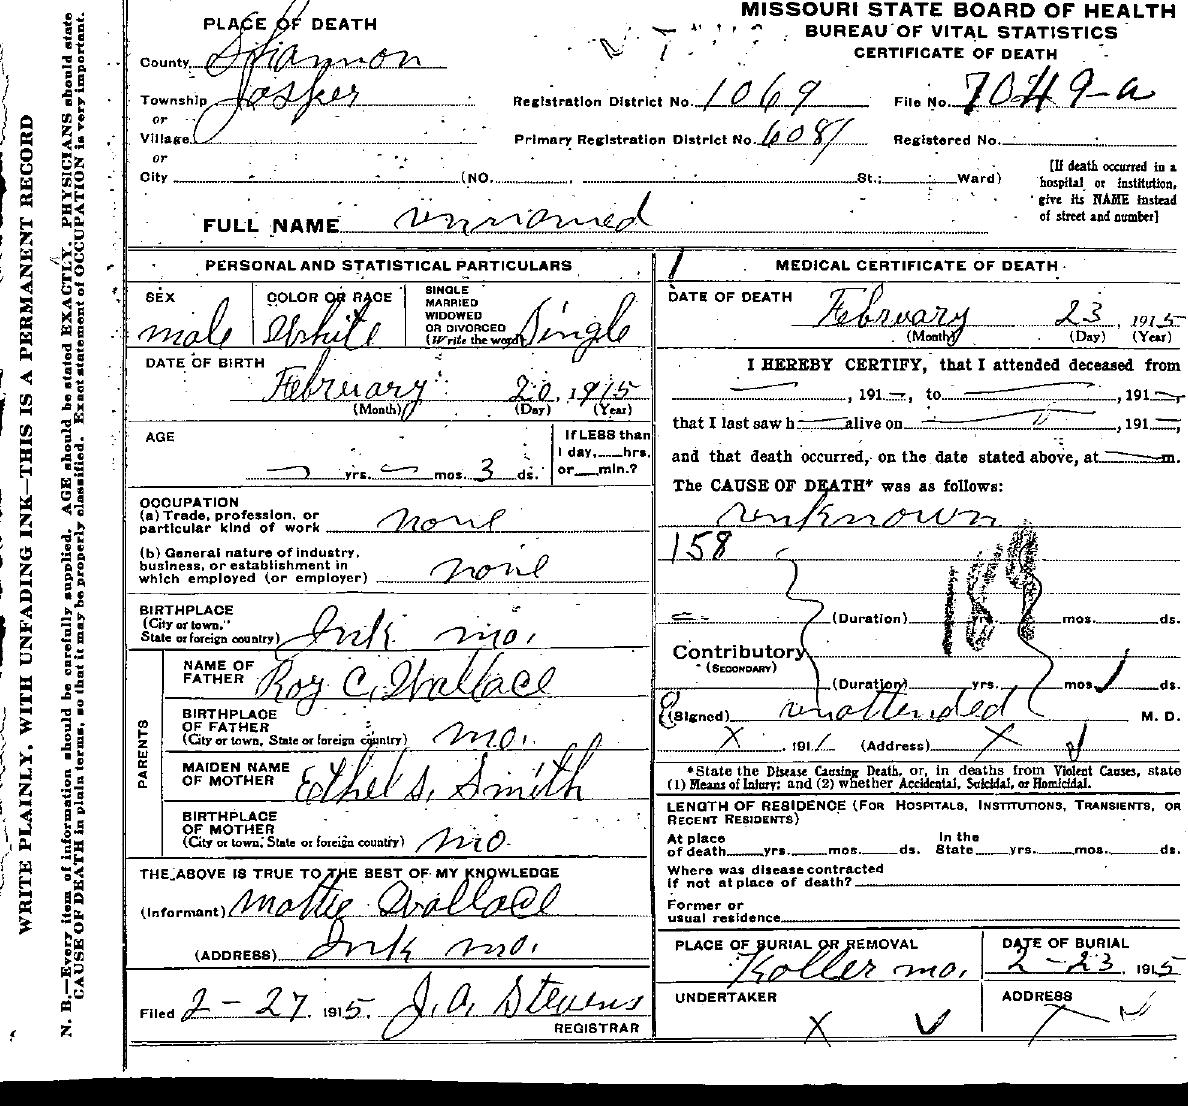 MISSOURI STATE BOARD OF HEALTH
BUREAU OF VITAL STATISTICS
CERTIFICATE OF DEATH
PLACE OF DEATH
County Shannon
Township Jasper
or
Village
or
City (NO. St.; Ward)
Registration District No. 1069
File No. 7049-a
Primary Registration District No. 6081
Registered No.
[If death occurred in a
hospital or institution,
give its NAME instead
of street and number]
FULL NAME unnamed
PERSONAL AND STATISTICAL PARTICULARS
SEX
male
COLOR OR RACE
White
SINGLE
MARRIED
WIDOWED
OR DIVORCED
(Write the word)
Single
DATE OF BIRTH
February 20, 1915
(Month) (Day) (Year)
AGE
yrs. mos. 3 ds.
If LESS than
1 day, hrs.
or min.?
OCCUPATION
(a) Trade, profession, or
particular kind of work none
(b) General nature of industry,
business, or establishment in
which employed (or employer) none
BIRTHPLACE
(City or town,
State or foreign country) Ink mo.
PARENTS
NAME OF
FATHER Roy C. Wallace
BIRTHPLACE
OF FATHER
(City or town, State or foreign country) mo.
MAIDEN NAME
OF MOTHER Ethel S. Smith
BIRTHPLACE
OF MOTHER
(City or town, State or foreign country) mo.
THE ABOVE IS TRUE TO THE BEST OF MY KNOWLEDGE
(Informant) Mattie Wallace
(ADDRESS) Ink mo.
Filed 2-27, 1915. J. A. Stevens
REGISTRAR
MEDICAL CERTIFICATE OF DEATH
DATE OF DEATH
February 23, 1915
(Month) (Day) (Year)
I HEREBY CERTIFY, that I attended deceased from
, 191 , to , 191 ,
that I last saw h alive on , 191 ,
and that death occurred, on the date stated above, at m.
The CAUSE OF DEATH* was as follows:
unknown
158
189
(Duration) yrs. mos. ds.
Contributory
(SECONDARY)
(Duration) yrs. mos. ds.
(Signed) unattended M. D.
X , 191 (Address) X
*State the Disease Causing Death, or, in deaths from Violent Causes, state
(1) Means of Injury; and (2) whether Accidental, Suicidal, or Homicidal.
LENGTH OF RESIDENCE (FOR HOSPITALS, INSTITUTIONS, TRANSIENTS, OR
RECENT RESIDENTS)
At place
of death yrs. mos. ds.
In the
State yrs. mos. ds.
Where was disease contracted
if not at place of death?
Former or
usual residence
PLACE OF BURIAL OR REMOVAL
Koller mo.
DATE OF BURIAL
2-23, 1915
UNDERTAKER
X
ADDRESS
X
WRITE PLAINLY, WITH UNFADING INK—THIS IS A PERMANENT RECORD
N. B.—Every item of information should be carefully supplied. AGE should be stated EXACTLY. PHYSICIANS should state
CAUSE OF DEATH in plain terms, so that it may be properly classified. Exact statement of OCCUPATION is very important.